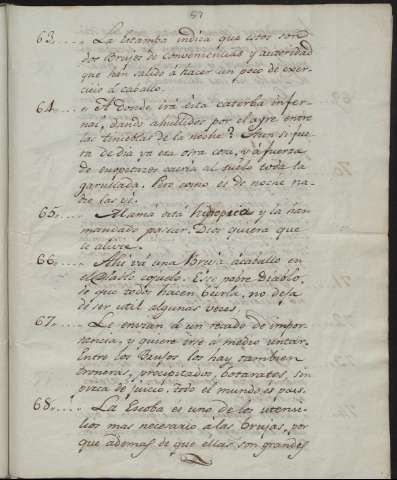 57
63..... La Estampa indica que estos son
dos Brujos de conveniencias y autoridad
que han salido á hacer un poco de exer-
cicio á caballo.
64..... A donde irá esta caterba infer-
nal, dando ahullidos por el ayre entre
las tinieblas de la noche? Aun si fue-
ra de dia ya era otra cosa, y á fuerza
de escopetazos caeria al suelo toda la
garullada. Pero como es de noche na-
die las ve.
65..... Mamá está hidropica y la han
mandado pasear. Dios quiera que
se alivie.
66..... Ahi vá una Bruja á caballo en
el Diablo cojuelo. Este pobre Diablo,
de que todos hacen burla, no deja
de ser util algunas veces.
67..... Le envian á un recado de impor-
tancia, y quiere irse á medio untar.
Entre los Brujos los hay tambien
troneras, precipitados, botarates, sin
pizca de juicio, todo el mundo es pais.
68..... La Escoba es uno de los utensi-
lios mas necesario á las Brujas, por
que ademas de que ellas son grandes